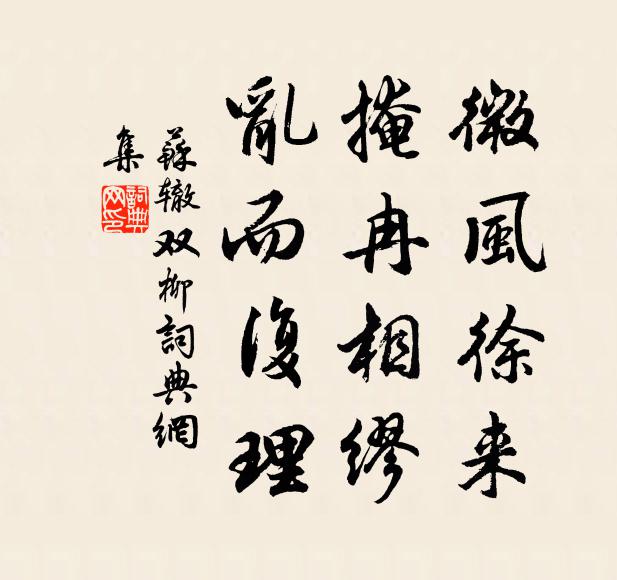 微風徐来
掩冉相繆
亂而復理
蘇辙双柳詞典網
集
詞典网印